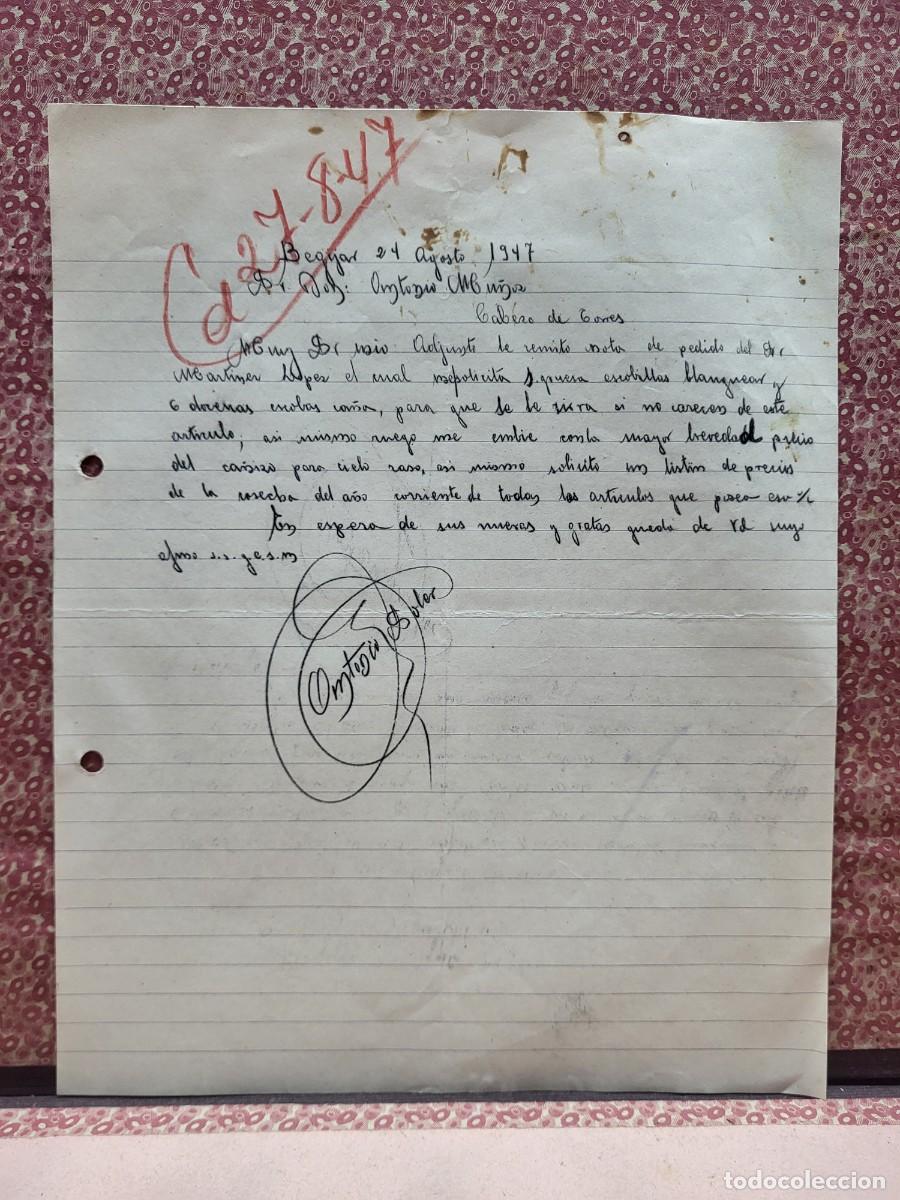 Cd 27-8-47
Begijar 24 Agosto 1947
Sr Don: Antonio Muñoz
Cabezo de Torres
Muy Sr mio Adjunto le remito nota de pedido del Sr
Martinez Lopez el cual solicita 1 gruesa escobillas blanquear y
6 docenas escobas caña, para que se le sirva si no carecen de este
articulo, asi mismo ruego me embie con la mayor brevedad precio
del cañizo para cielo raso, asi mismo solicito un listin de precios
de la cosecha del año corriente de todos los articulos que posea esa
En espera de sus nuevas y gratas queda de Vd suyo
afmo s.s.q.e.s.m
Antonio Soler
todocoleccion